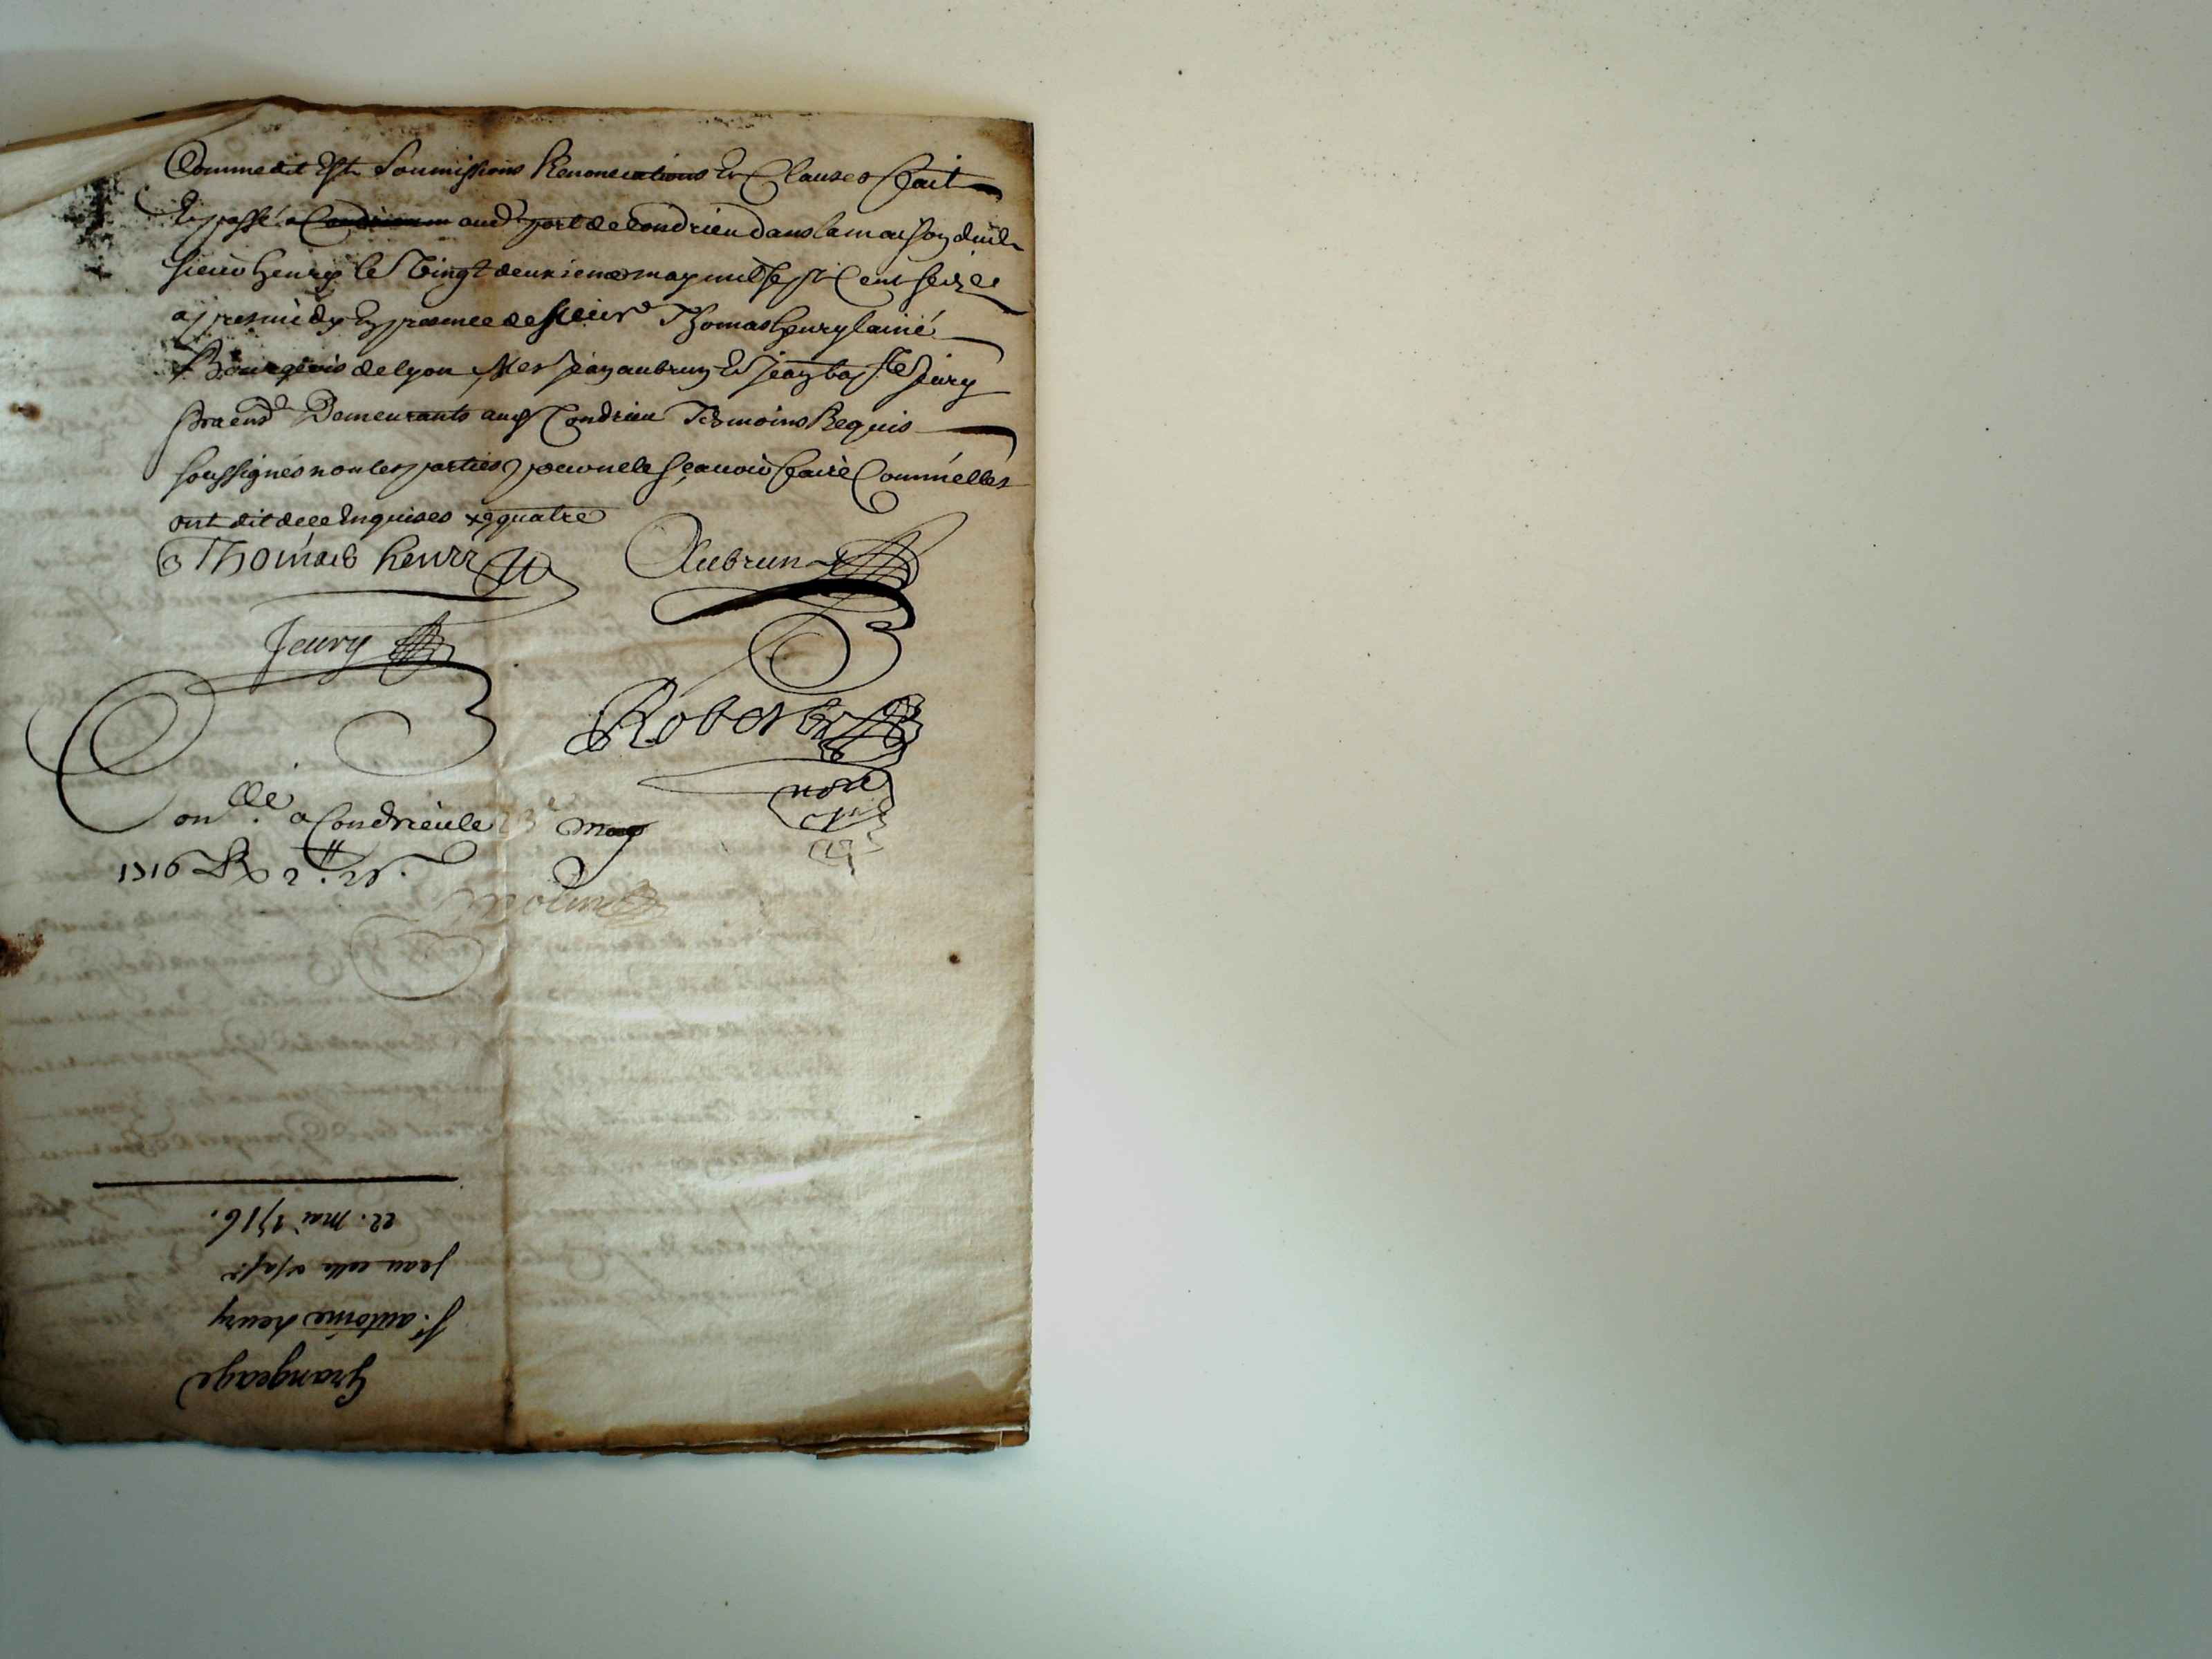 Comme dit Est Soumissions Renonciations Et Clauses ffait
Et passé a Condrieu aud port de Condrieu dans la maison dud
sieur henry le Vingt deuxieme may mil sept Cent seize
apres midy En presence de sieur Thomas henry lainé
Bourgeois de lyon Mes Jean aubrun Et Jean bapste Jeury
Demeurants aud Condrieu Tesmoins Requis
soussignés non les parties pour ne le sçavoir ffaire Comm'elles
ont dit de ce Enquises quatre
Thomas henry
Aubrun
Jeury
Robert
nore
Conllé a Condrieu le 23e may
1716 R 2
22. mai 1716.
Jean
Sr. antoine henry
Grangeage